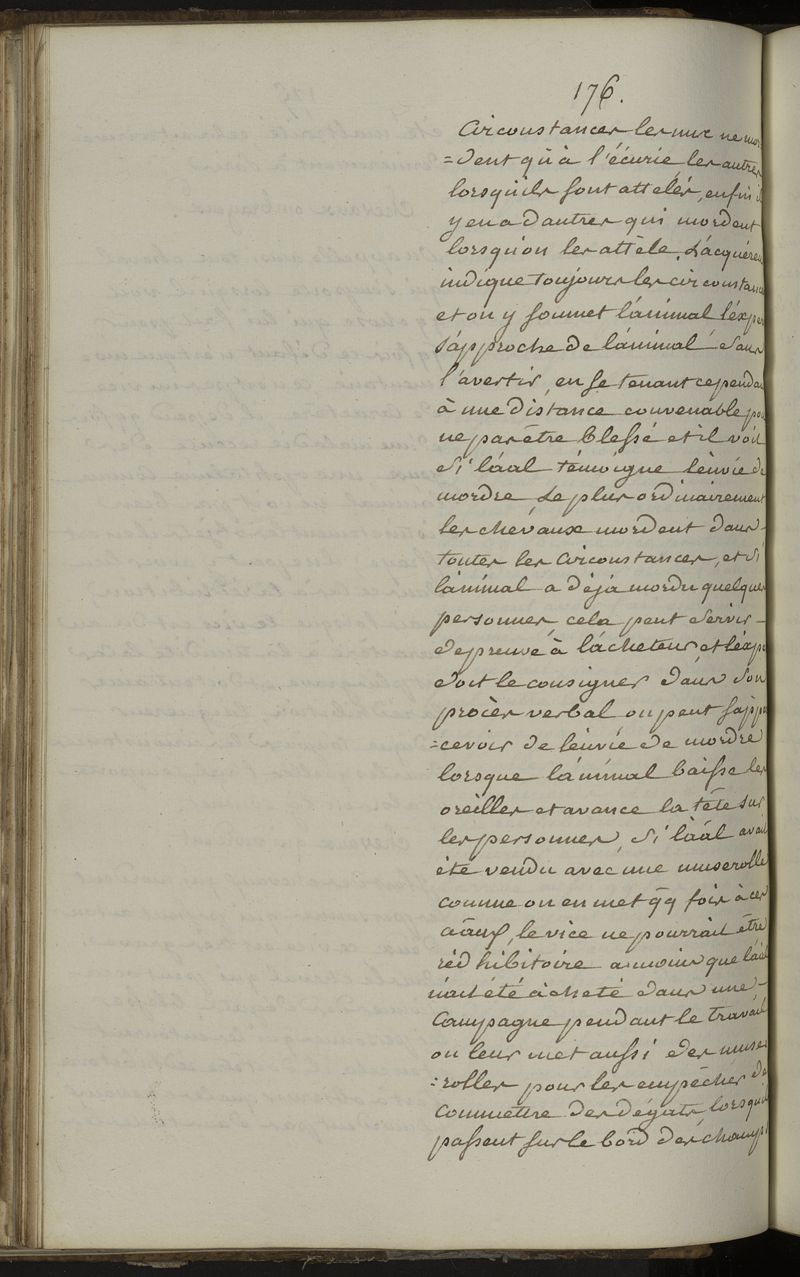 176.
Circonstances les uns ne mor
=dent qu'à l'écurie, les autres
lorsqu'ils sont attelés, enfin il
y en a d'autres qui mordent
lorsqu'on les attèle. L'acquéreur
indique toujours les circonstances
et on y soumet l'animal l'éxpert
s'approche de l'animal sans
l'avertir, en se tenant cependant
à une distance convenable pour
ne pas être blessé et il voit
si l'aal témoigne l'envie de
mordre, Le plus ordinairement
les chevaux mordent dans
toutes les circonstances, et si
l'animal a déja mordu quelques
personnes, cela peut servir
depreuve à l'acheteur et l'éxpt
doit le consigner dans son
procès verbal, on peut s'apper
=cevoir de l'envie de mordre
lorsque l'animal baisse les
oreilles et avance la tête sur
les personnes, si l'aal avait
été vendu avec une muserolle
comme on en met qq fois à ces
aaux, le vice ne pourrait être
rédhibitoire amoins que l'aal
n'ait été acheté dans une
Campagne pendant le travail
on leur met aussi des muse
=rolles pour les empêcher de
commettre des dégats lorsqu'ils
passent sur le bord des champs